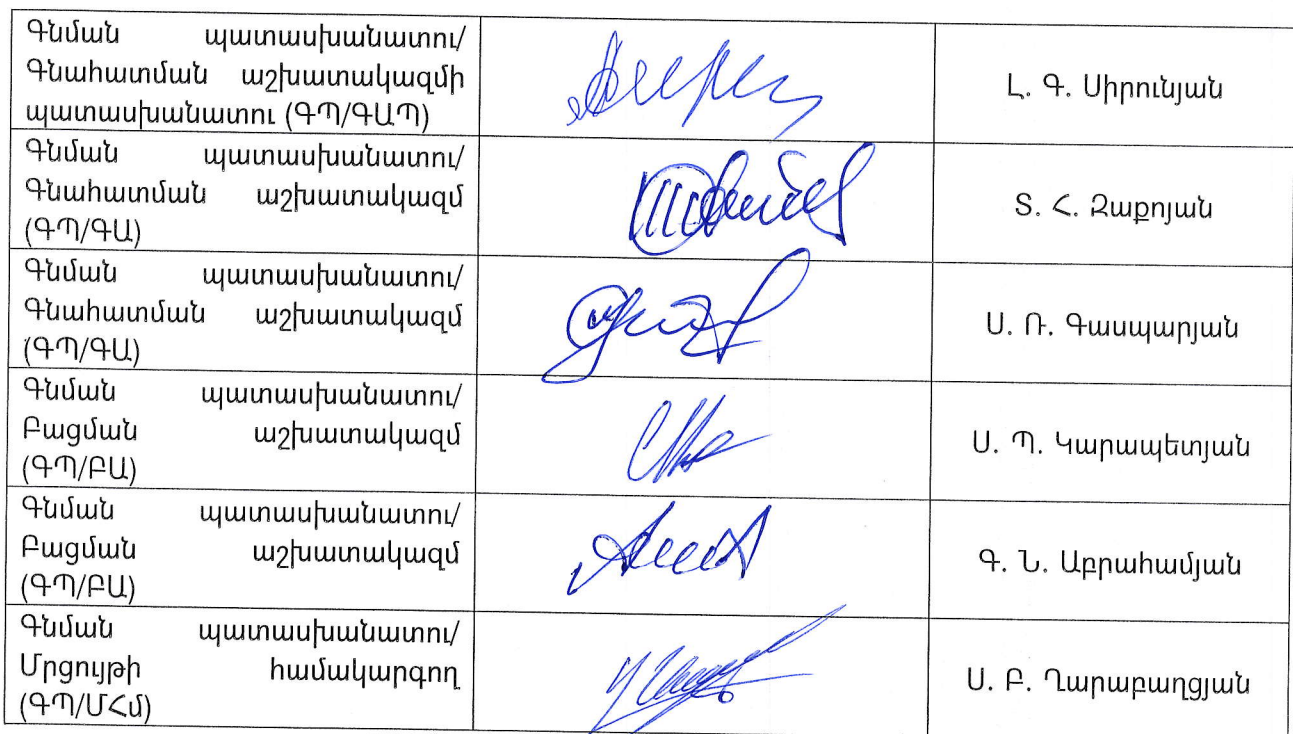 Գնման պատասխանատու/
Գնահատման աշխատակազմի
պատասխանատու (ԳՊ/ԳԱՊ)
Լ. Գ. Սիրունյան
Գնման պատասխանատու/
Գնահատման աշխատակազմ
(ԳՊ/ԳԱ)
Տ. Հ. Զաքոյան
Գնման պատասխանատու/
Գնահատման աշխատակազմ
(ԳՊ/ԳԱ)
Ս. Ռ. Գասպարյան
Գնման պատասխանատու/
Բացման աշխատակազմ
(ԳՊ/ԲԱ)
Ս. Պ. Կարապետյան
Գնման պատասխանատու/
Բացման աշխատակազմ
(ԳՊ/ԲԱ)
Գ. Ն. Աբրահամյան
Գնման պատասխանատու/
Մրցույթի համակարգող
(ԳՊ/ՄՀմ)
Ս. Բ. Ղարաբաղցյան